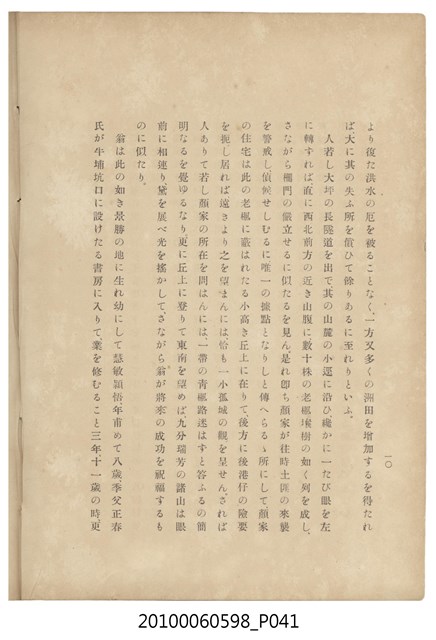 一〇
より復た洪水の厄を被ることなく、一方又多くの洲田を增加するを得たれ
ば大に其の失ふ所を償ひて餘りあるに至れりといふ。
人若し大坪の長隧道を出で其の山麓の小逕に沿ひ、纔かに一たび眼を左
に轉すれば、直に西北前方の近き山腹に、數十株の老榔堵樹の如く列を成し、
さながら柵門の儼立せるに似たるを見ん。是れ卽ち顏家が往時土匪の來襲
を警戒し、偵候せしむるに唯一の據點となりしと傳へらるゝ所にして、顏家
の住宅は此の老榔に蔽はれたる小高き丘上に在りて、後方に後港仔の險要
を扼し居れば遠きより之を望まんには、恰も一小孤城の觀を呈せん。されば
人ありて若し顏家の所在を問はんには、一帶の靑榔路迷はすと答ふるの簡
明なるを覺ゆるなり。更に丘上に登りて東南を望めば、九分瑞芳の諸山は眼
前に相連り、黛を展べ光を搖かして、さながら翁が將來の成功を祝福するも
のに似たり。
翁は此の如き景勝の地に生れ、幼にして慧敏穎悟、年甫めて八歲、季父正春
氏が牛埔坑口に設けたる書房に入りて、業を修むること三年、十一歲の時、更
20100060598_P041